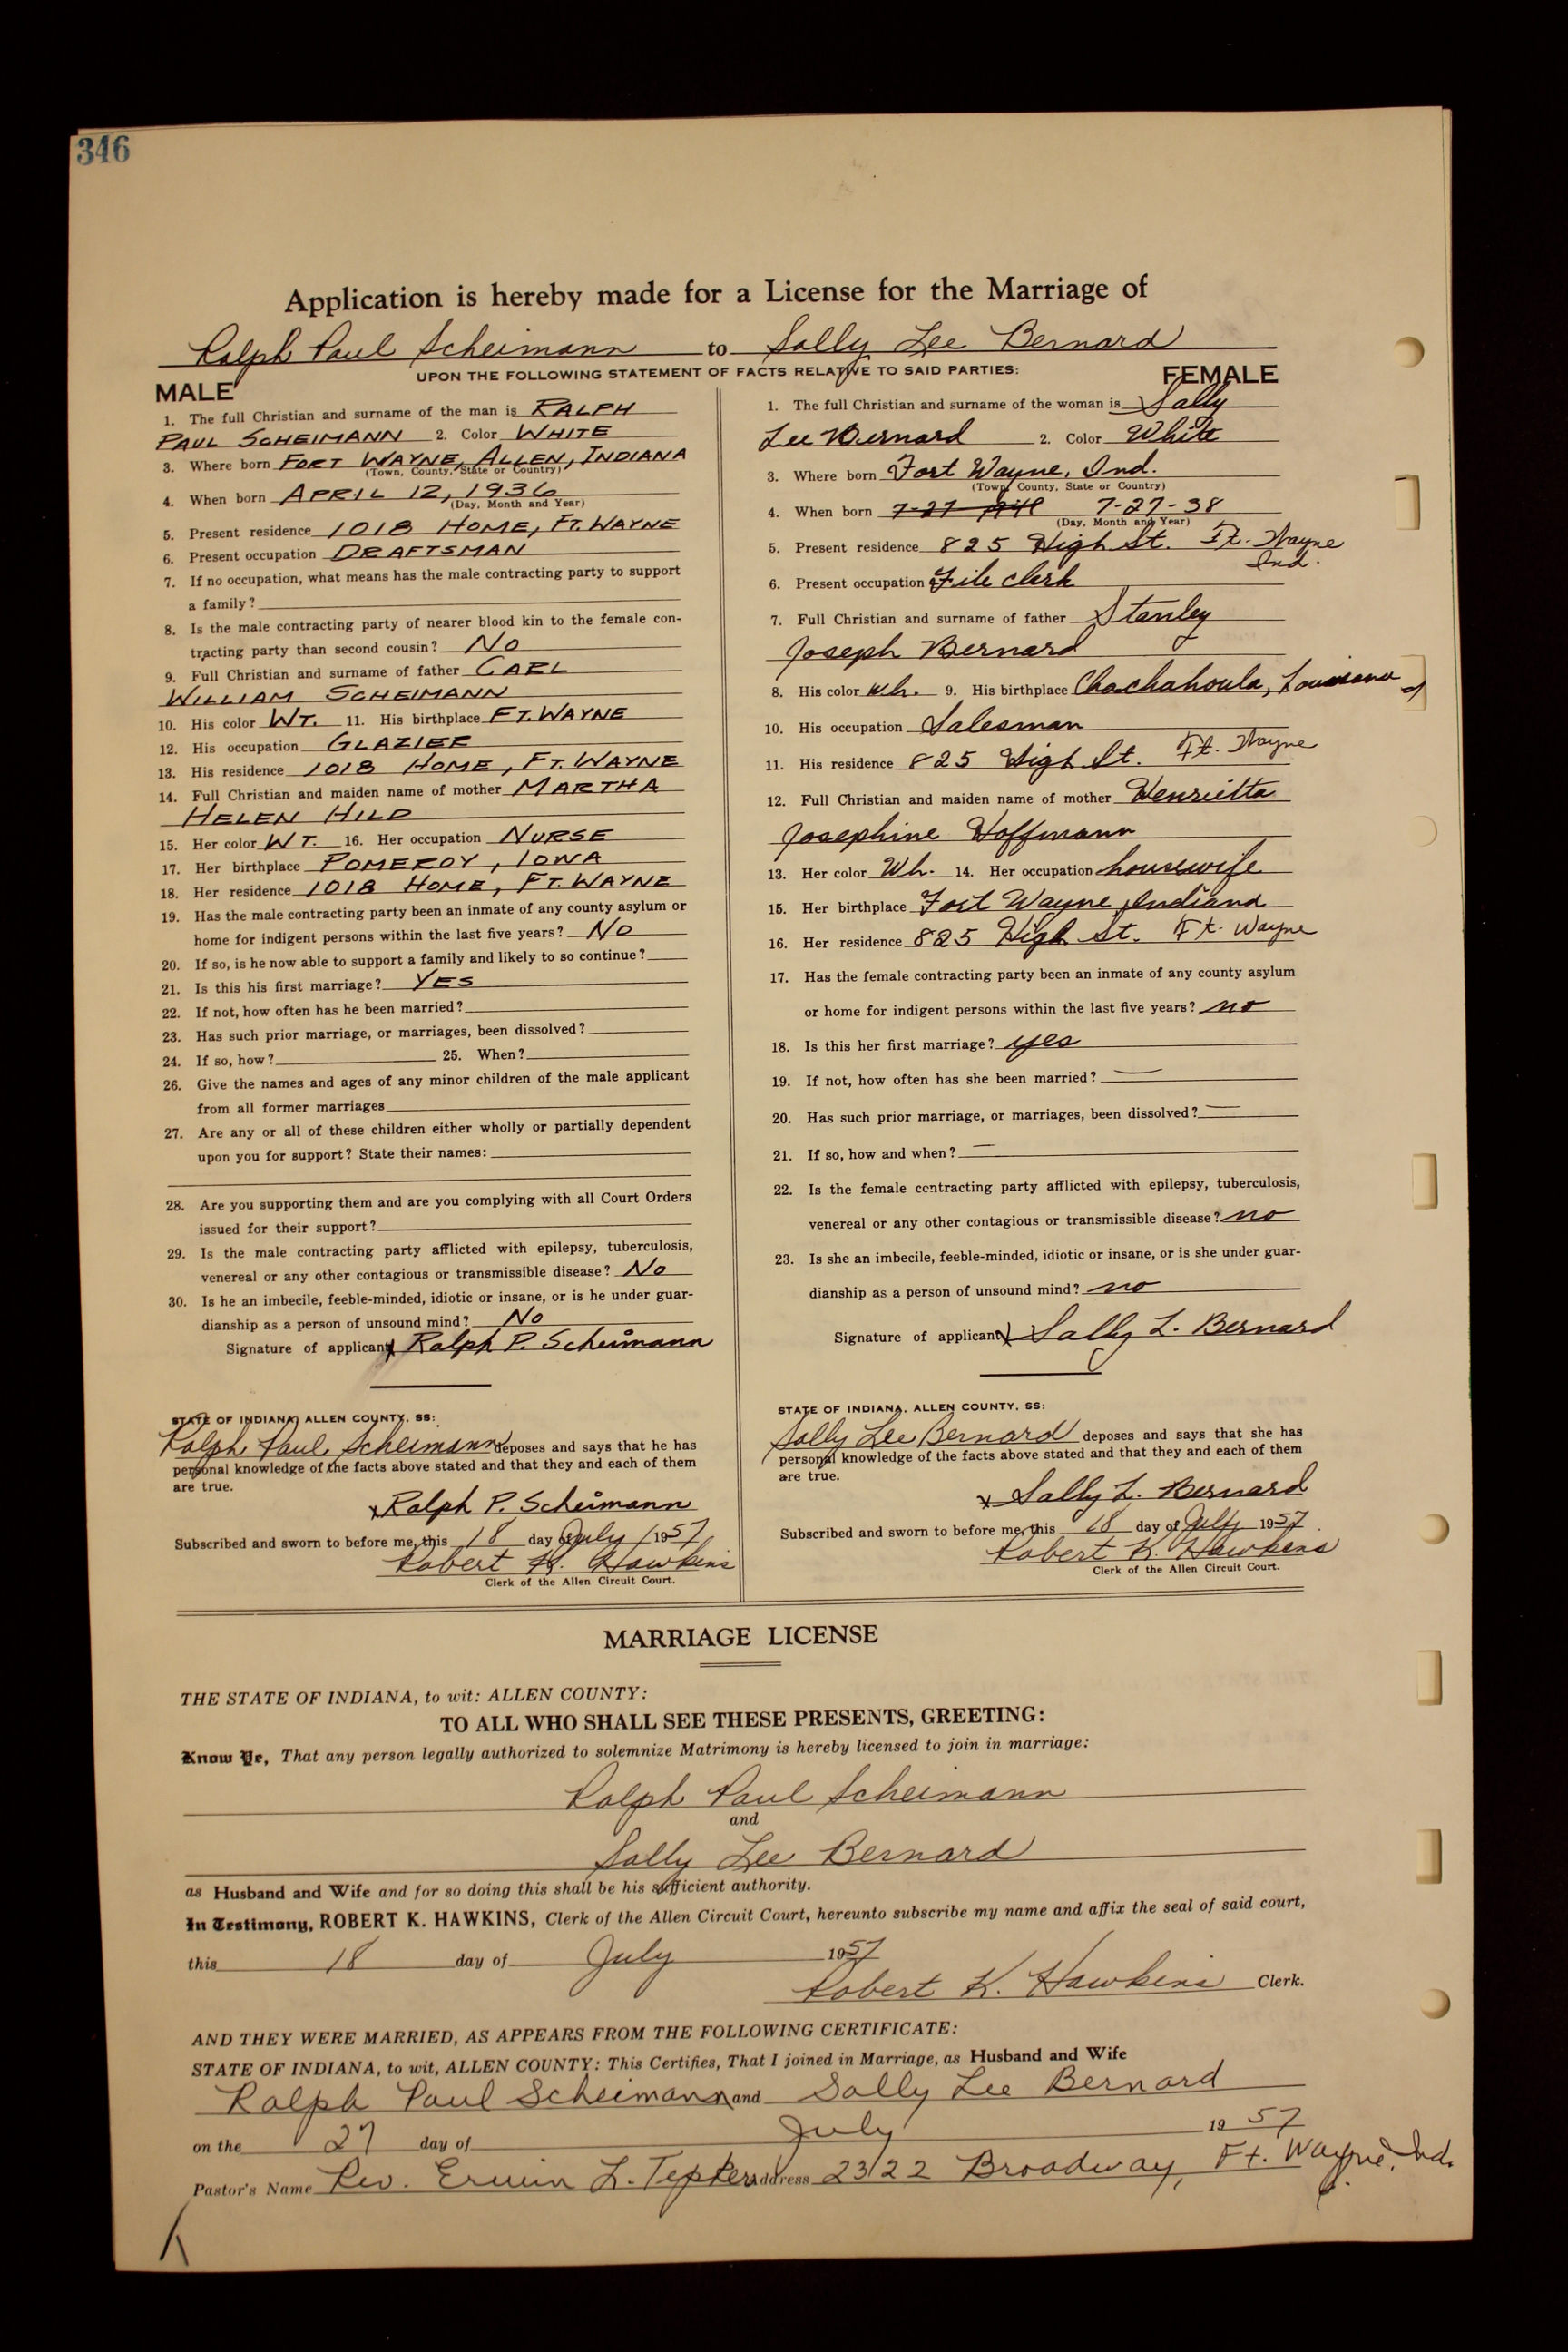 346
Application is hereby made for a License for the Marriage of
Ralph Paul Scheimann to Sally Lee Bernard
UPON THE FOLLOWING STATEMENT OF FACTS RELATIVE TO SAID PARTIES:
MALE
1. The full Christian and surname of the man is RALPH
PAUL SCHEIMANN 2. Color WHITE
3. Where born FORT WAYNE, ALLEN, INDIANA
(Town, County, State or Country)
4. When born APRIL 12, 1936
(Day, Month and Year)
5. Present residence 1018 HOME, FT. WAYNE
6. Present occupation DRAFTSMAN
7. If no occupation, what means has the male contracting party to support
a family?
8. Is the male contracting party of nearer blood kin to the female con-
tracting party than second cousin? NO
9. Full Christian and surname of father CARL
WILLIAM SCHEIMANN
10. His color WT. 11. His birthplace FT. WAYNE
12. His occupation GLAZIER
13. His residence 1018 HOME, FT. WAYNE
14. Full Christian and maiden name of mother MARTHA
HELEN HILD
15. Her color WT. 16. Her occupation NURSE
17. Her birthplace POMEROY, IOWA
18. Her residence 1018 HOME, FT. WAYNE
19. Has the male contracting party been an inmate of any county asylum or
home for indigent persons within the last five years? NO
20. If so, is he now able to support a family and likely to so continue?
21. Is this his first marriage? YES
22. If not, how often has he been married?
23. Has such prior marriage, or marriages, been dissolved?
24. If so, how? 25. When?
26. Give the names and ages of any minor children of the male applicant
from all former marriages
27. Are any or all of these children either wholly or partially dependent
upon you for support? State their names:
28. Are you supporting them and are you complying with all Court Orders
issued for their support?
29. Is the male contracting party afflicted with epilepsy, tuberculosis,
venereal or any other contagious or transmissible disease? No
30. Is he an imbecile, feeble-minded, idiotic or insane, or is he under guar-
dianship as a person of unsound mind? No
Signature of applicant x Ralph P. Scheimann
STATE OF INDIANA, ALLEN COUNTY, SS:
Ralph Paul Scheimann deposes and says that he has
personal knowledge of the facts above stated and that they and each of them
are true.
x Ralph P. Scheimann
Subscribed and sworn to before me, this 18 day of July 1957
Robert K. Hawkins
Clerk of the Allen Circuit Court.
FEMALE
1. The full Christian and surname of the woman is Sally
Lee Bernard 2. Color White
3. Where born Fort Wayne, Ind.
(Town, County, State or Country)
4. When born 7-27 7-27-38
(Day, Month and Year)
5. Present residence 825 High St. Ft. Wayne
Ind.
6. Present occupation File clerk
7. Full Christian and surname of father Stanley
Joseph Bernard
8. His color wh. 9. His birthplace Chachahoula, Louisiana
10. His occupation Salesman
11. His residence 825 High St. Ft. Wayne
12. Full Christian and maiden name of mother Henrietta
Josephine Hoffmann
13. Her color Wh. 14. Her occupation housewife
15. Her birthplace Fort Wayne, Indiana
16. Her residence 825 High St. Ft. Wayne
17. Has the female contracting party been an inmate of any county asylum
or home for indigent persons within the last five years? no
18. Is this her first marriage? yes
19. If not, how often has she been married? —
20. Has such prior marriage, or marriages, been dissolved? —
21. If so, how and when? —
22. Is the female contracting party afflicted with epilepsy, tuberculosis,
venereal or any other contagious or transmissible disease? no
23. Is she an imbecile, feeble-minded, idiotic or insane, or is she under guar-
dianship as a person of unsound mind? no
Signature of applicant x Sally L. Bernard
STATE OF INDIANA, ALLEN COUNTY, SS:
Sally Lee Bernard deposes and says that she has
personal knowledge of the facts above stated and that they and each of them
are true.
x Sally L. Bernard
Subscribed and sworn to before me, this 18 day of July 1957
Robert K. Hawkins
Clerk of the Allen Circuit Court.
MARRIAGE LICENSE
THE STATE OF INDIANA, to wit: ALLEN COUNTY:
TO ALL WHO SHALL SEE THESE PRESENTS, GREETING:
Know Ye, That any person legally authorized to solemnize Matrimony is hereby licensed to join in marriage:
Ralph Paul Scheimann
and
Sally Lee Bernard
as Husband and Wife and for so doing this shall be his sufficient authority.
In Testimony, ROBERT K. HAWKINS, Clerk of the Allen Circuit Court, hereunto subscribe my name and affix the seal of said court,
this 18 day of July 1957
Robert K. Hawkins Clerk.
AND THEY WERE MARRIED, AS APPEARS FROM THE FOLLOWING CERTIFICATE:
STATE OF INDIANA, to wit, ALLEN COUNTY: This Certifies, That I joined in Marriage, as Husband and Wife
Ralph Paul Scheimann and Sally Lee Bernard
on the 27 day of July 1957
Pastor's Name Rev. Erwin L. Tepker Address 2322 Broadway, Ft. Wayne, Ind.